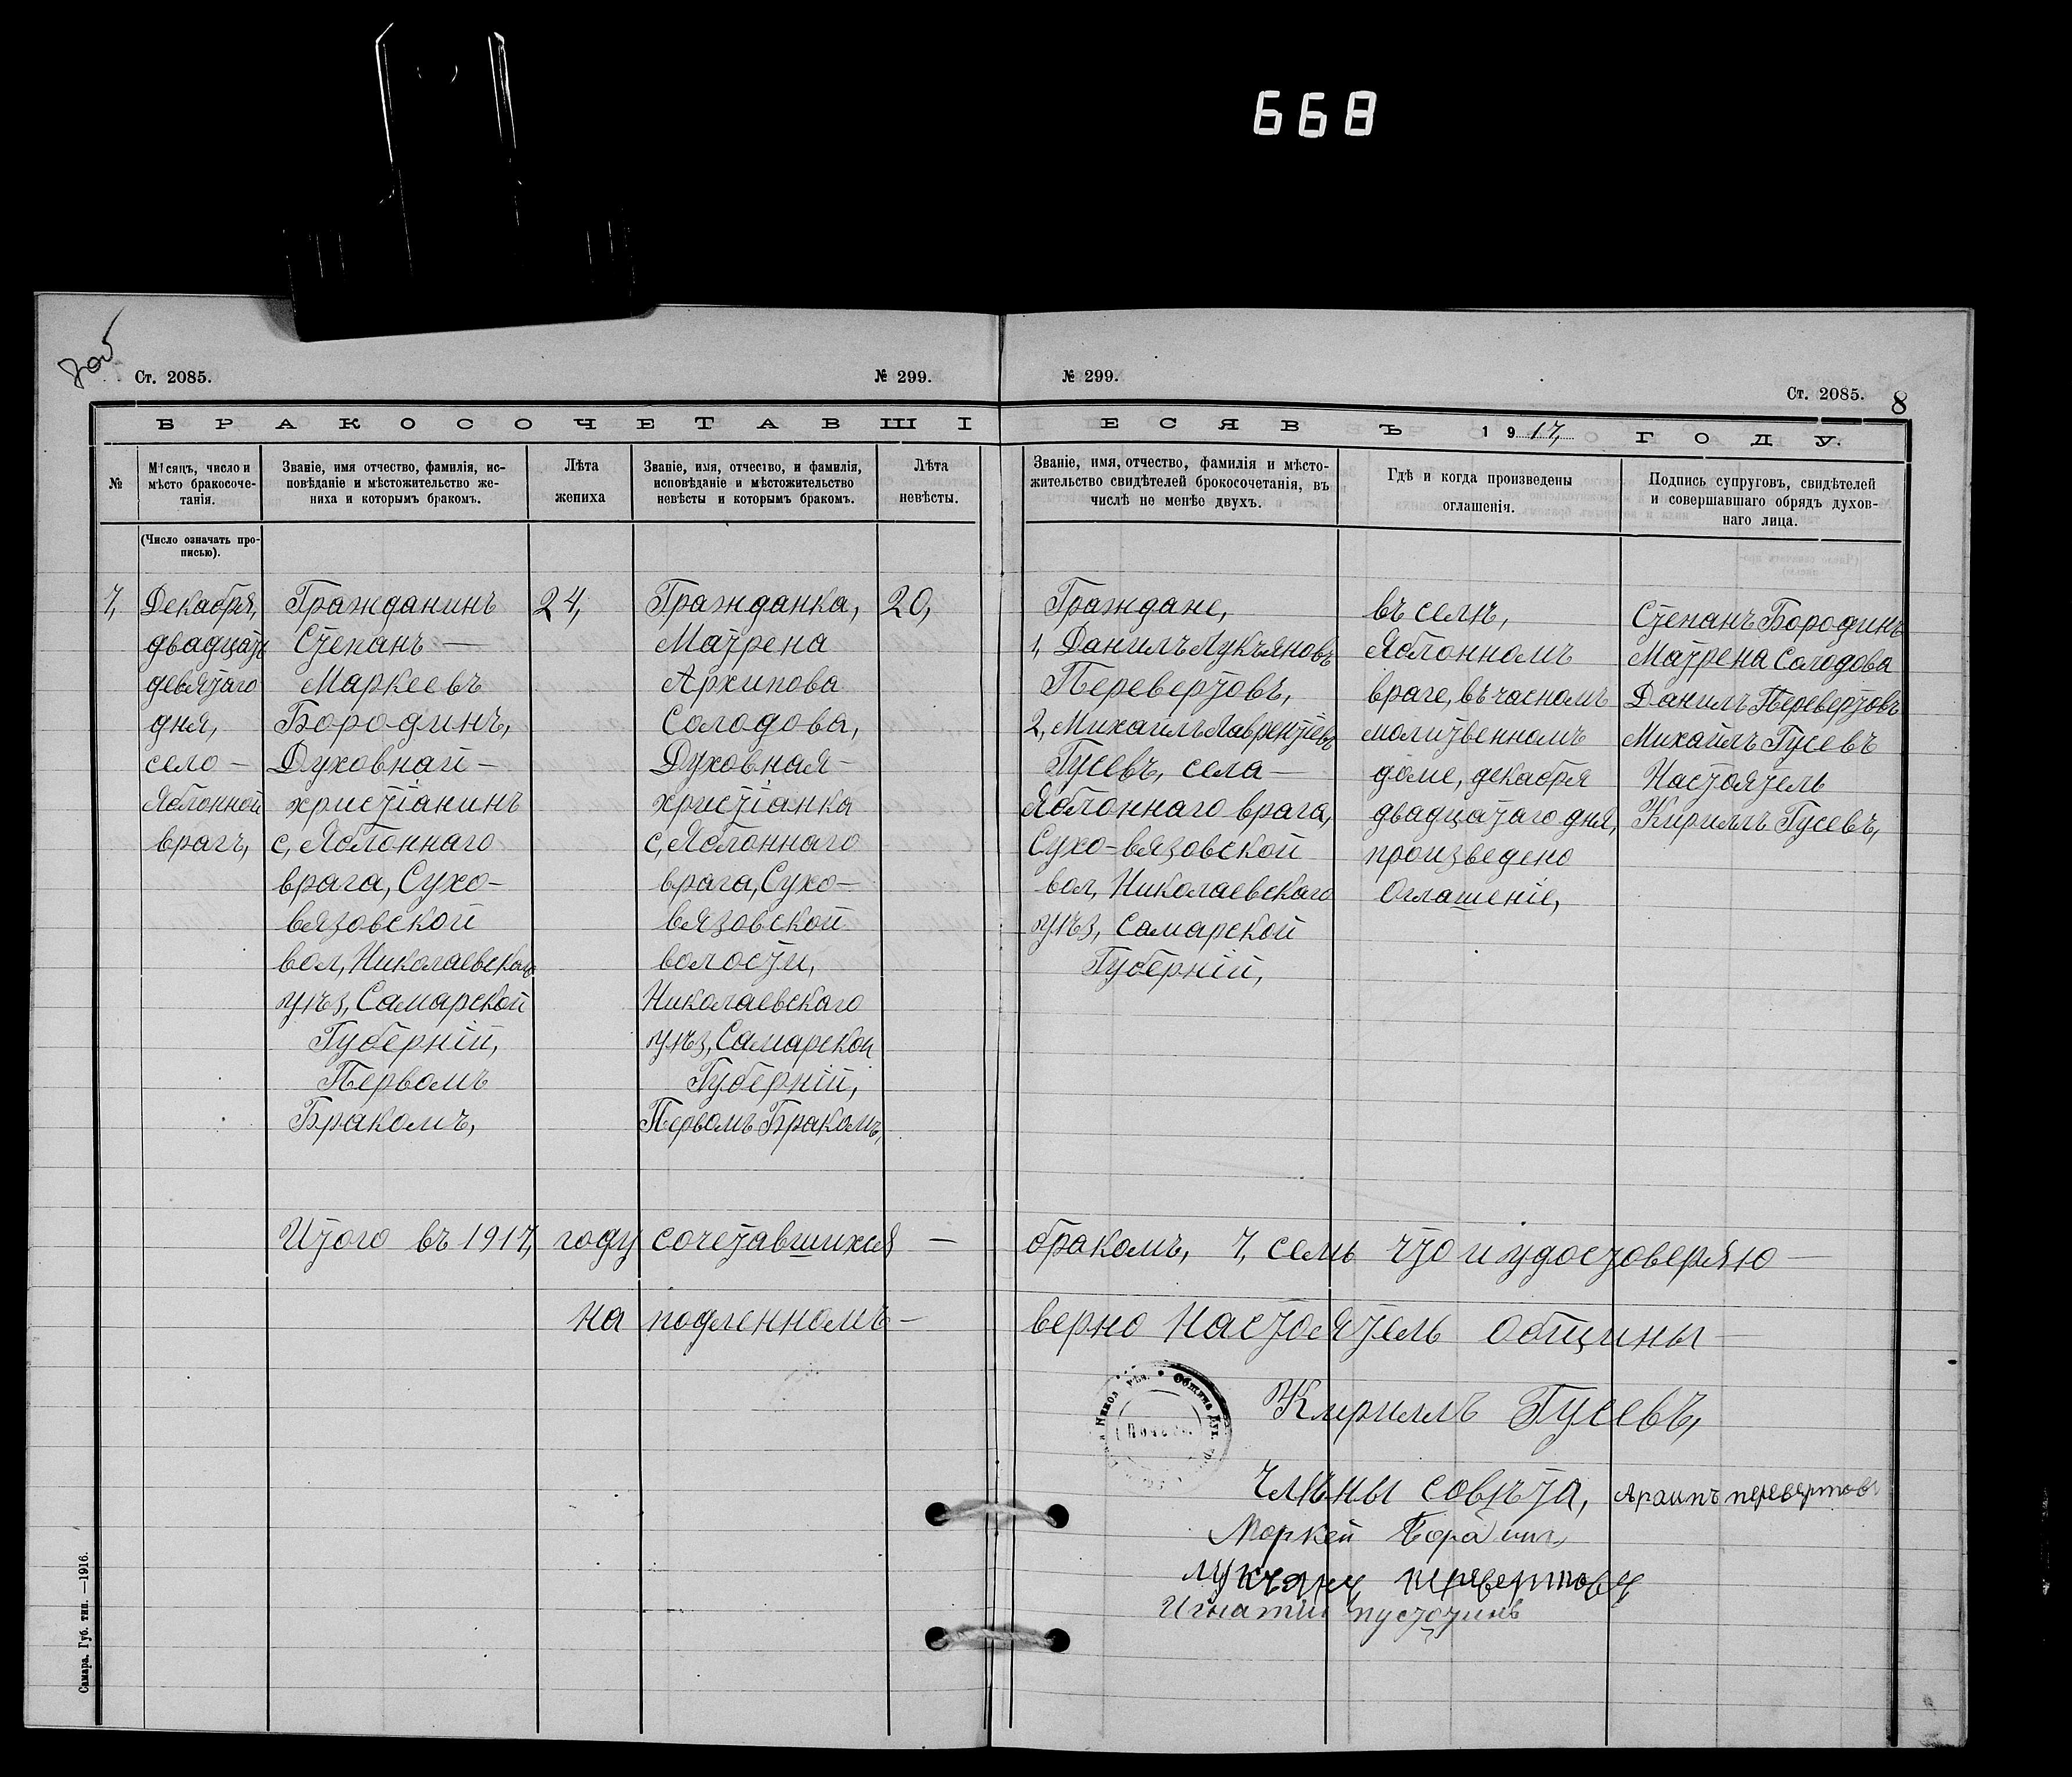 668
Ст. 2085.
№ 299.
№ 299.
Ст. 2085.
8
БРАКОСОЧЕТАВШІ
ЕСЯ ВЪ 1917, ГОДУ.
№
Мѣсяцъ, число и
мѣсто бракосоче-
танія.
Званіе, имя отчество, фамилія, ис-
повѣданіе и мѣстожительство же-
ниха и которымъ бракомъ.
Лѣта
жениха
Званіе, имя, отчество, и фамилія,
исповѣданіе и мѣстожительство
невѣсты и которымъ бракомъ.
Лѣта
невѣсты.
Званіе, имя, отчество, фамилія и мѣсто-
жительство свидѣтелей брокосочетанія, въ
числѣ не менѣе двухъ.
Гдѣ и когда произведены
оглашенія.
Подпись супруговъ, свидѣтелей
и совершавшаго обрядъ духов-
наго лица.
(Число означать про-
писью).
7,
Декабря,
двадцать
девятаго
дня,
село —
Яблонной
врагъ,
Гражданинъ
Степанъ —
Маркеевъ
Бородинъ,
Духовнай —
христіанинъ
с, Яблоннаго
врага, Сухо-
вязовской
вол, Николаевскаго
уѣз, Самарской
Губерній,
Первомъ
Бракомъ,
24,
Гражданка,
Матрена
Архипова
Солодова,
Духовная —
христіанка
с, Яблоннаго
врага, Сухо-
вязовской
волости,
Николаевскаго
уѣз, Самарской
Губерній,
Первомъ Бракомъ,
20,
Граждане,
1, Данилъ Лукъяновъ
Перевертовъ,
2, Михаилъ Лаврентіевъ
Гусевъ, села —
Яблоннаго врага,
Сухо-вязовской
вол, Николаевскаго
уѣз, Самарской
Губерній,
въ селѣ,
Яблонномъ
враге, въ часномъ
молитвенномъ
доме, декабря
двадцатаго дня,
произведено
Оглашеніе,
Степанъ Бородинъ
Матрена Солодова
Данилъ Перевертовъ
Михайлъ Гусевъ
Настоятель
Кириллъ Гусевъ,
Итого въ 1917, году сочетавшихся — бракомъ, 7, семь что и удостоверяю —
на подленномъ — верно Настоятель Общины —
Кириллъ Гусевъ,
Члѣны совѣта, Архипъ перевертовъ
Моркей
Лукъянъ перевертовъ
Игнатій пустотинъ
Община Дух.
Самара. Губ. тип. —1916.